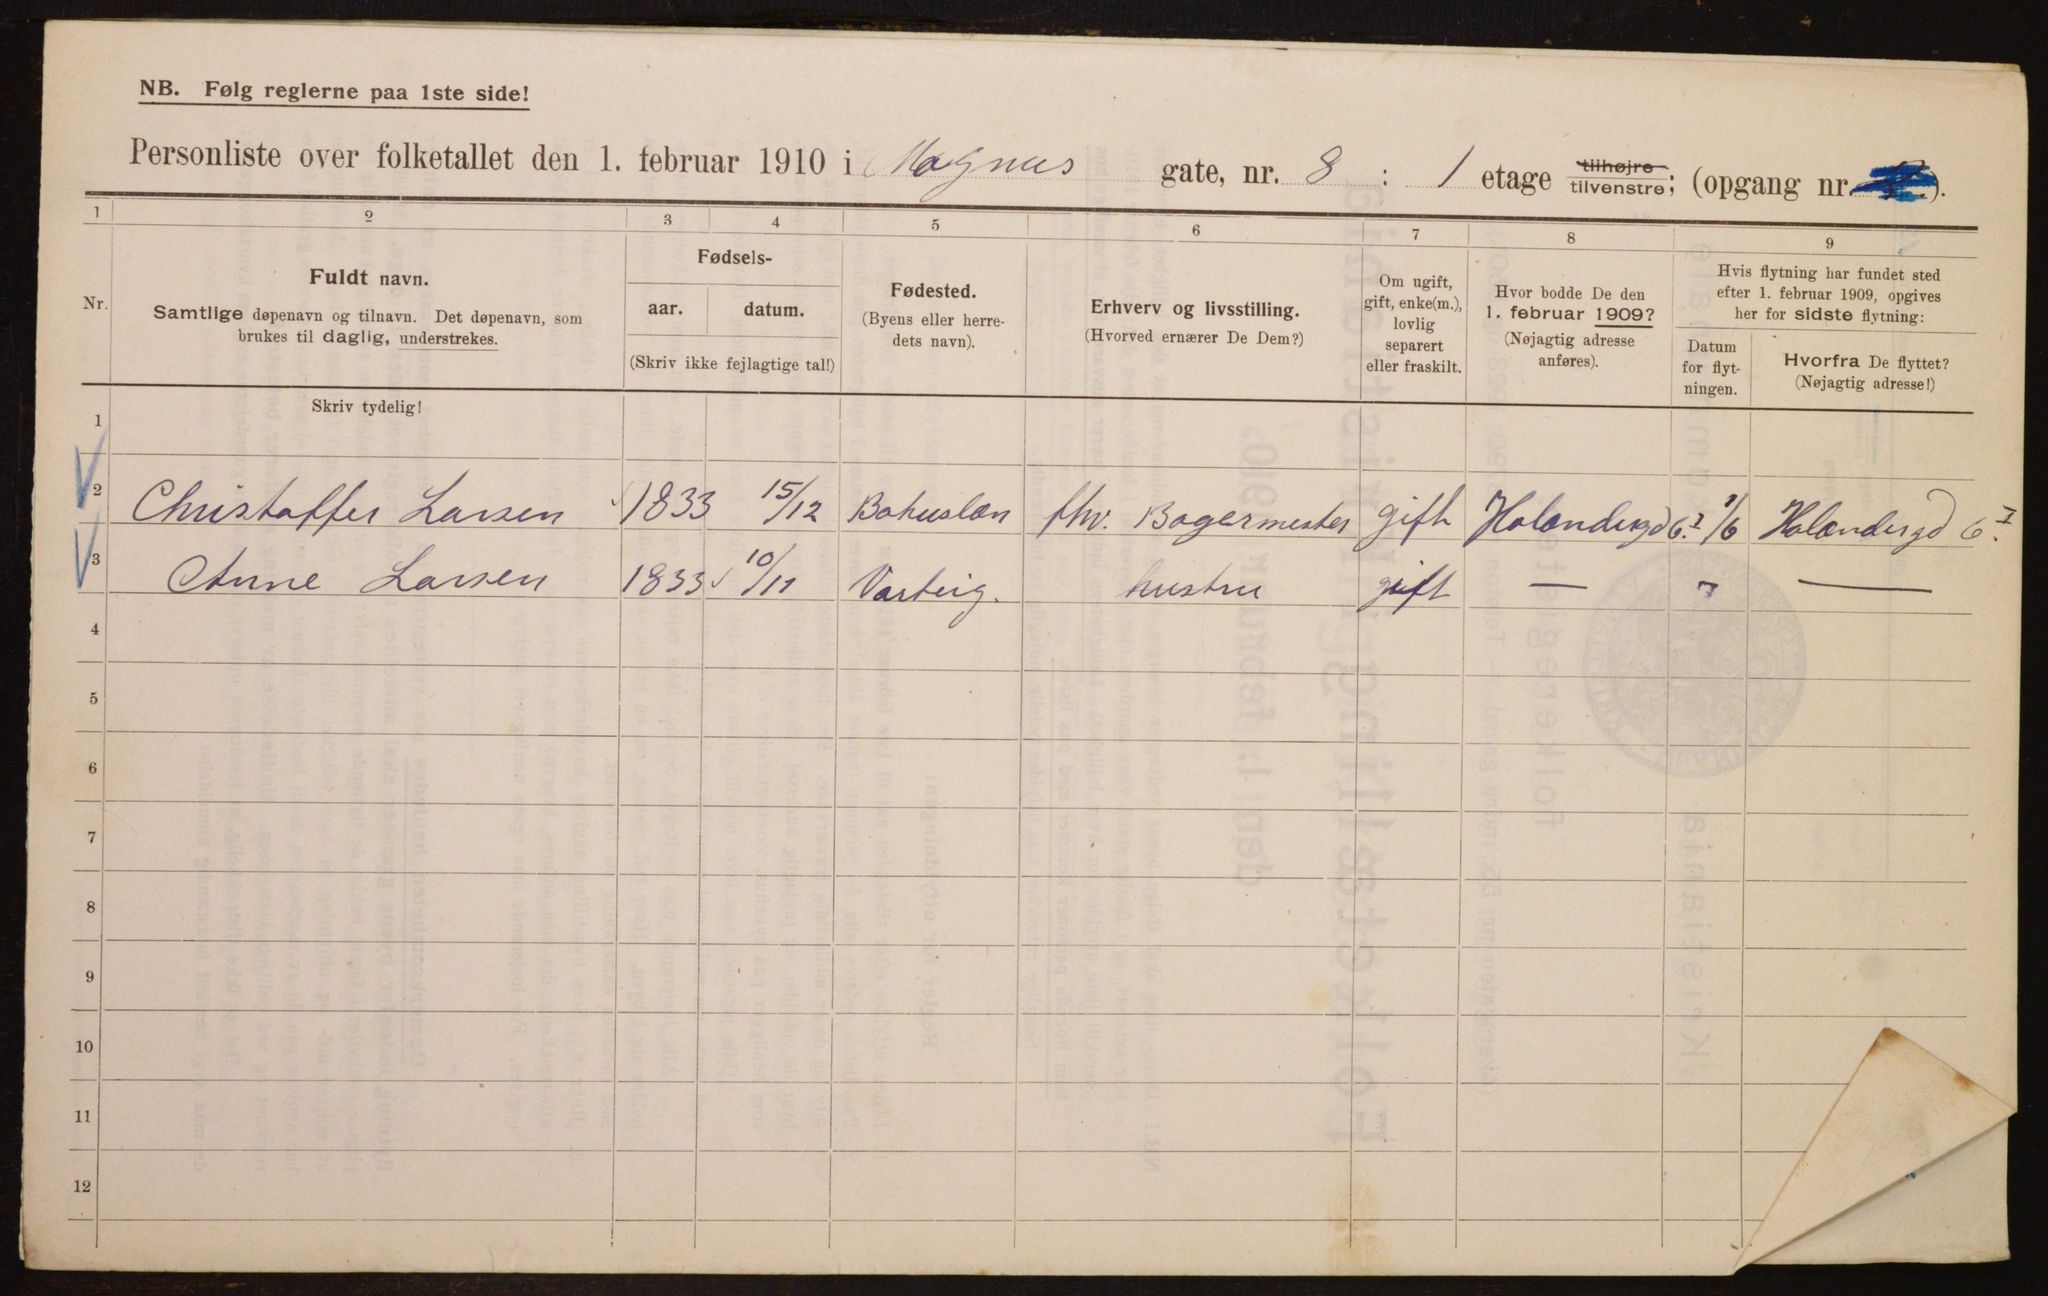 NB. Følg reglerne paa 1ste side!
Personliste over folketallet den 1. februar 1910 i Magnus gate, nr. 8 : 1 etage tilhøjre tilvenstre; (opgang nr. ).
1 2 3 4 5 6 7 8 9
Nr.
Fuldt navn.
Samtlige døpenavn og tilnavn. Det døpenavn, som
brukes til daglig, understrekes.
Fødsels-
aar. datum.
(Skriv ikke fejlagtige tal!)
Fødested.
(Byens eller herre-
dets navn).
Erhverv og livsstilling.
(Hvorved ernærer De Dem?)
Om ugift,
gift, enke(m.),
lovlig
separert
eller fraskilt.
Hvor bodde De den
1. februar 1909?
(Nøjagtig adresse
anføres).
Hvis flytning har fundet sted
efter 1. februar 1909, opgives
her for sidste flytning:
Datum
for flyt-
ningen.
Hvorfra De flyttet?
(Nøjagtig adresse!)
Skriv tydelig!
1
2 Christoffer Larsen 1833 15/12 Bohuslæn fhv. Bagermester gift Holændergd 6. I 1/6 Holændergd 6. I
3 Anne Larsen 1833 10/11 Varteig. hustru gift — " —
4
5
6
7
8
9
10
11
12